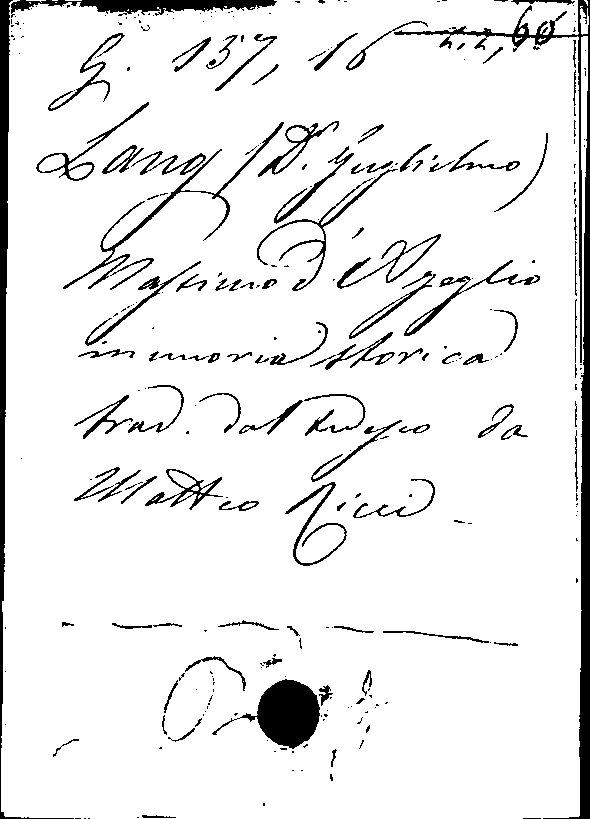 G. 137, 16
Lang (Dr. Guglielmo)
Massimo d'Azeglio
memoria storica
trad. dal tedesco da
Matteo Ricci